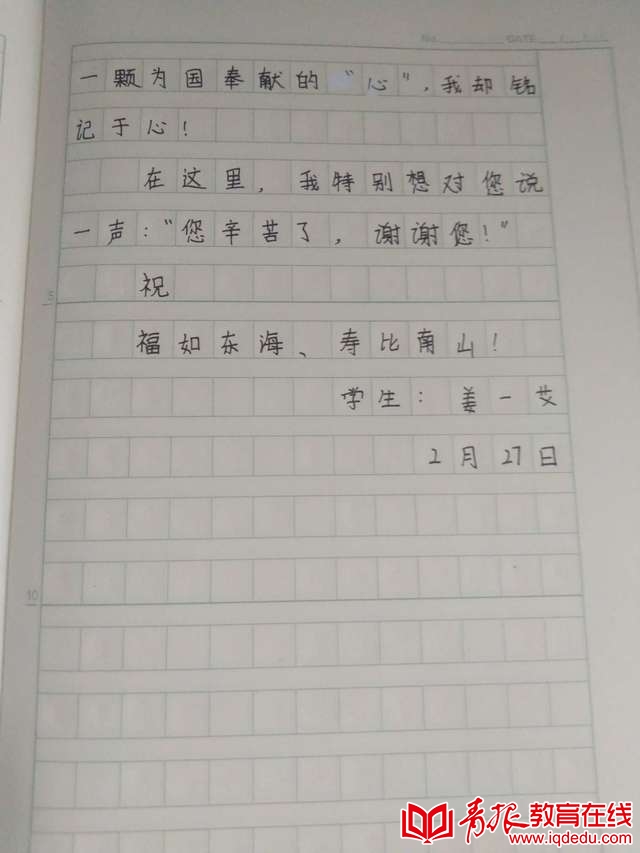 No. DATE / /
一颗为国奉献的“心”，我却铭
记于心！
在这里，我特别想对您说
一声：“您辛苦了，谢谢您！”
5
祝
福如东海、寿比南山！
学生：姜一艾
2月27日
10
青报教育在线
www.iqdedu.com